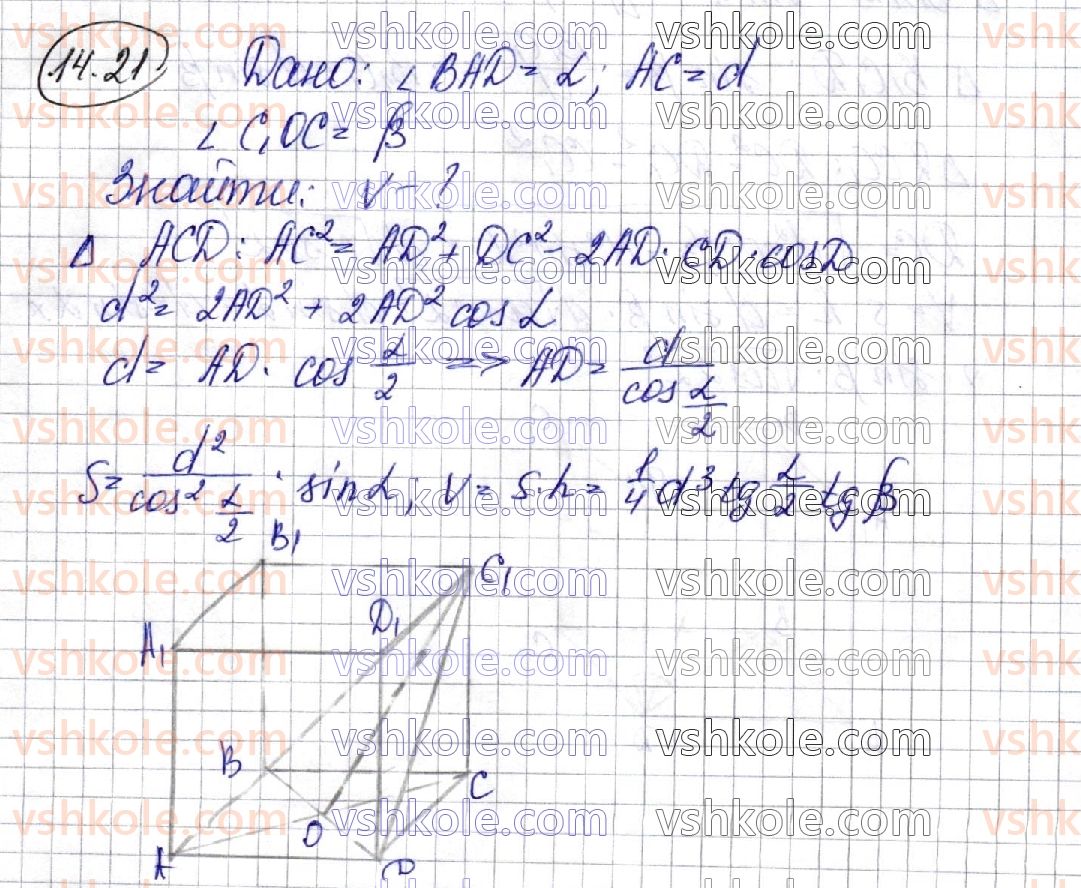 14.21 Дано: ∠BAD = α; AC = d
∠C₁OC = β
Знайти: V - ?
Δ ACD: AC² = AD² + DC² - 2AD · CD · cosD
d² = 2AD² + 2AD² cos α
d = AD · cos α/2 => AD = d / cos α/2
S = d² / cos² α/2 · sin α; V = S · h = 1/4 d³ tg α/2 tg β
B₁
C₁
D₁
A₁
B
C
O
A
D
vshkole.com